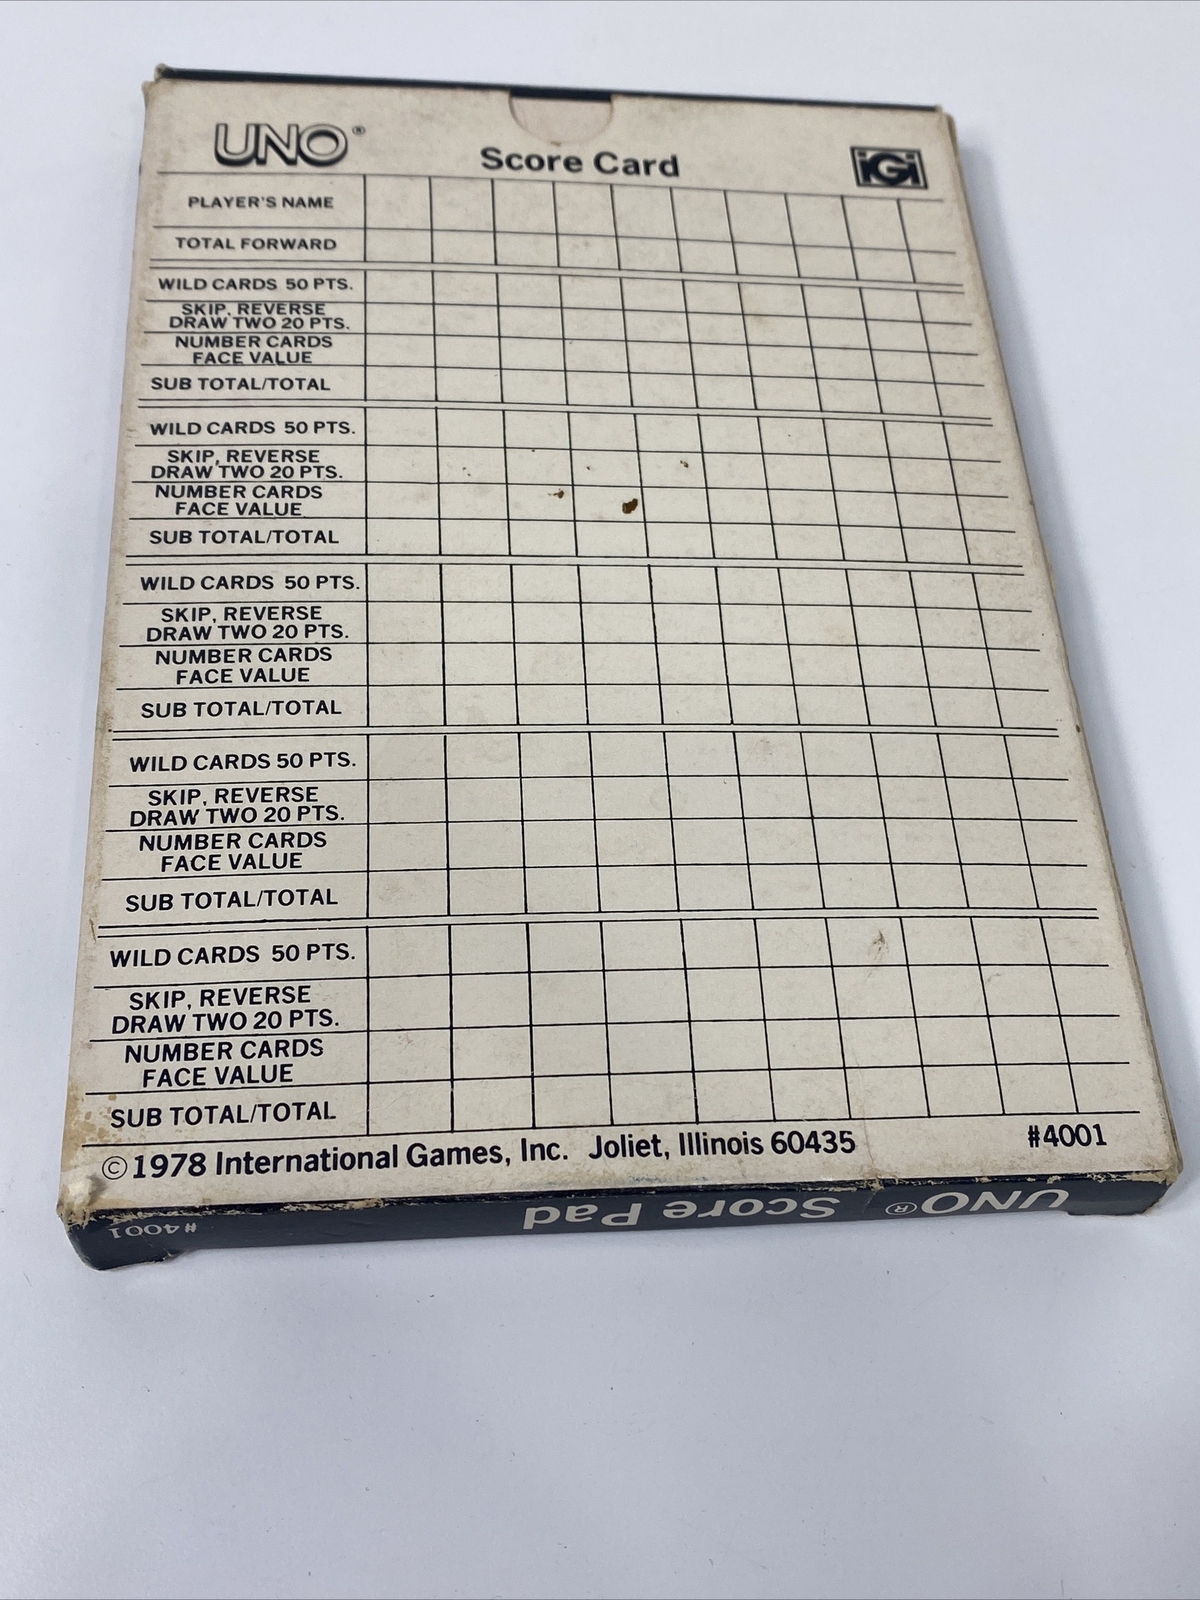 UNO®
Score Card
iGi
PLAYER'S NAME
TOTAL FORWARD
WILD CARDS 50 PTS.
SKIP, REVERSE
DRAW TWO 20 PTS.
NUMBER CARDS
FACE VALUE
SUB TOTAL/TOTAL
WILD CARDS 50 PTS.
SKIP, REVERSE
DRAW TWO 20 PTS.
NUMBER CARDS
FACE VALUE
SUB TOTAL/TOTAL
WILD CARDS 50 PTS.
SKIP, REVERSE
DRAW TWO 20 PTS.
NUMBER CARDS
FACE VALUE
SUB TOTAL/TOTAL
WILD CARDS 50 PTS.
SKIP, REVERSE
DRAW TWO 20 PTS.
NUMBER CARDS
FACE VALUE
SUB TOTAL/TOTAL
WILD CARDS 50 PTS.
SKIP, REVERSE
DRAW TWO 20 PTS.
NUMBER CARDS
FACE VALUE
SUB TOTAL/TOTAL
©1978 International Games, Inc. Joliet, Illinois 60435 #4001
UNO® Score Pad #4001